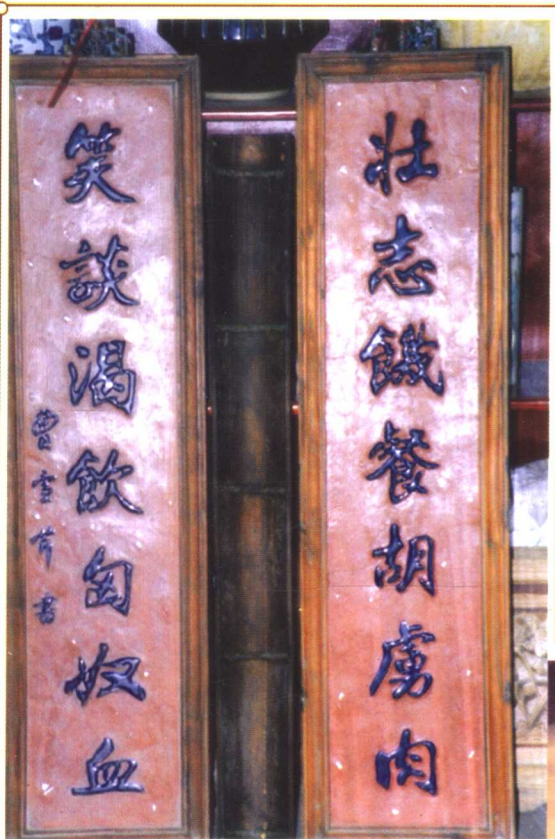 壯志饑餐胡虜肉
笑談渴飲匈奴血
曹雪芹書